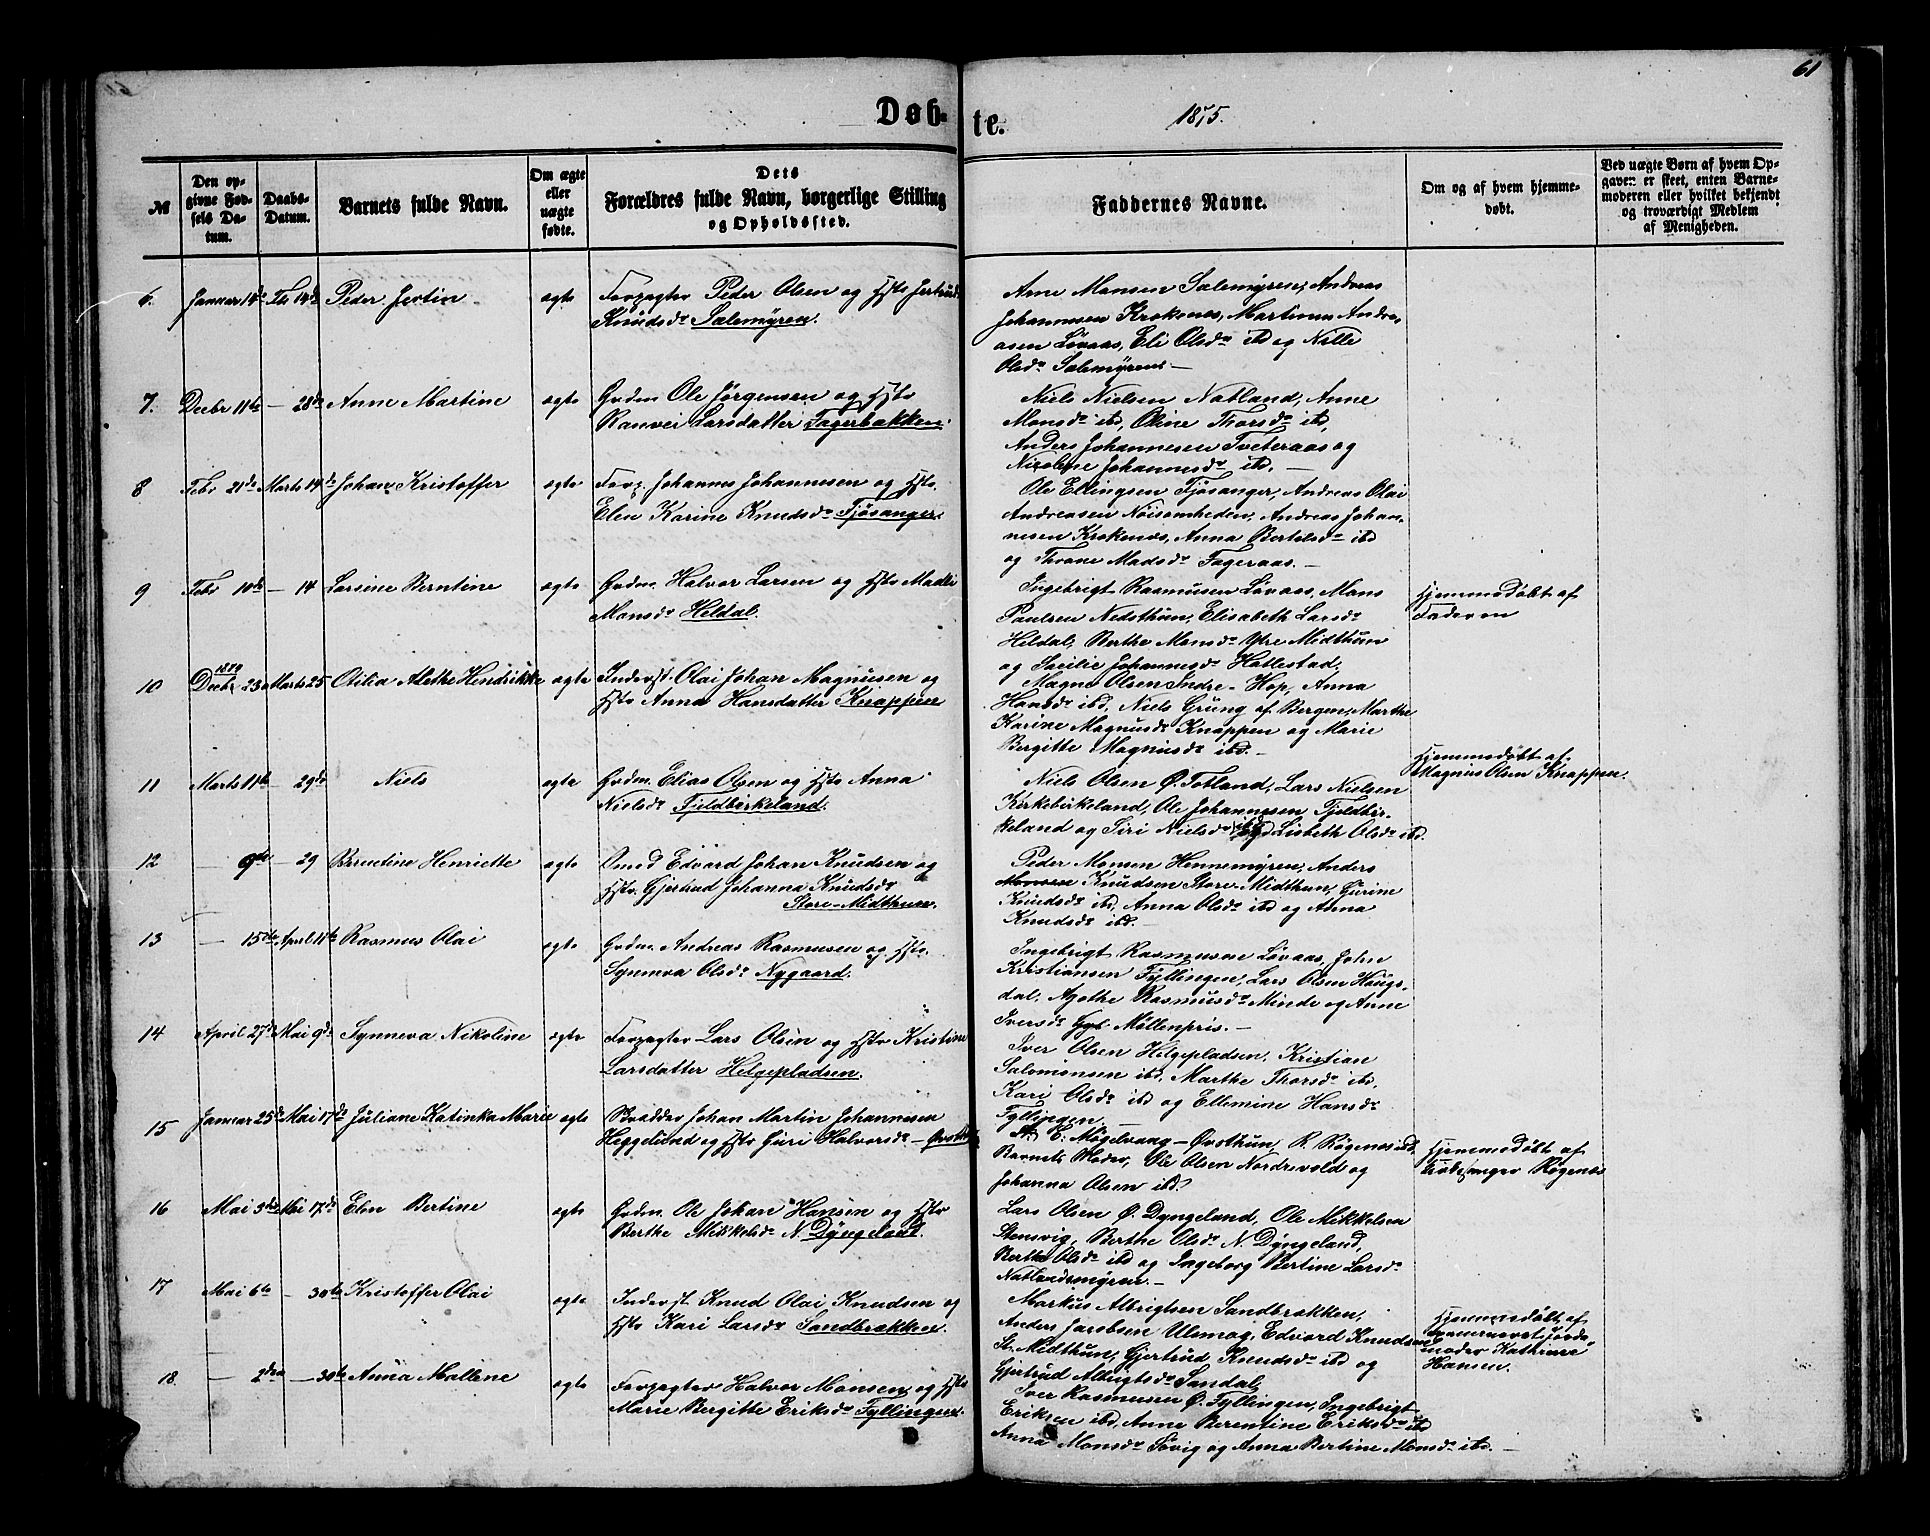 61
Døb-
te.
1875.
№
Den op-
givne Fød-
sels Da-
tum.
Daabs-
Datum.
Barnets fulde Navn.
Om ægte
eller
uægte
fødte.
Dets
Forældres fulde Navn, borgerlige Stilling
og Opholdssted.
Faddernes Navne.
Om og af hvem hjemme-
døbt.
Ved uægte Børn af hvem Op-
gaven er skeet, enten Barne-
moderen eller hvilket bekjendt
og troværdigt Medlem
af Menigheden.
6. Januar 14de Peder Jertin ægte Forpagter Peder Olsen og Hstr Jertrud
Knudsdr Sælemÿren.
Arne Monsen Sælemÿren, Andreas
Johannesen Krokenes, Martinus Andre-
asen Løvaas, Eli Olsdr ibd og Nille
Olsdr Sælemÿren —
7. Decbr 11te — 28de Anne Martine ægte Grdm. Ole Jørgensen og Hstr
Ranvei Larsdatter Fagerbakken.
Niels Nielsen Natland, Anne
Monsdr ibd, Oline Thorsdr ibd,
Anders Johannesen Tveteraas og
Nicoline Johannesdr ibd. —
8 Febr 21de Marts 14de Johan Kristoffer ægte Forp. Johannes Johannesen og Hstr.
Elen Karine Knudsdr Fjøsanger.
Ole Ellingsen Fjøsanger, Andreas Olai
Andreasen Nøisomheden, Andreas Johan-
nesen Krokenes, Anna Bertelsdr ibd
og Throne Madsdr Fageraas. —
9 Febr 10de — 14 Larsine Berntine ægte Grdm. Halvor Larsen og Hstr Madli
Monsdr Heldal.
Ingebrigt Rasmusen Løvaas, Mons
Paulsen Nedsthun, Elisabeth Larsdr
Heldal, Berthe Monsdr Ytre Midthun
og Sacilie Johannesdr Hatlestad.
Hjemmedøbt af
Faderen
10 1874
Decbr 23 Marts 25 Otilia Alethe Hendrikke ægte Inderst. Olai Johan Magnusen og
Hstr Anna Hansdatter Knappen
Magne Olsen Indre-Hop, Anna
Hansdr ibd, Niels Grung af Bergen, Marthe
Karine Magnusdr Knappen og Marie
Bergitte Magnusdr ibd. —
Hjemmedøbt af
Magnus Olsen Knappen.
11 Marts 11te — 29de Niels ægte Grdm. Elias Olsen og Hstr Anna
Nielsdr Fjeldbirkeland.
Niels Olsen Ø. Totland, Lars Nielsen
Kirkebirkeland, Ole Johannesen Fjeldbir-
keland og Siri Nielsdr ibd Lisbeth Olsdr ibd.
12 — 9de — 29 Berntine Henriette ægte Smed Edvard Johan Knudsen og
Hstr. Gjertrud Johanna Knudsdr
Store-Midthun.
Peder Monsen Hennemÿren, Anders
Monsen Knudsen Store-Midthun, Gurine
Knudsdr ibd, Anna Olsdr ibd og Anna
Knudsdr ibd. —
13 — 15de April 11te Rasmus Olai ægte Grdm. Andreas Rasmusen og Hstr.
Synneva Olsdr Nygaard.
Ingebrigt Rasmusen Løvaas, John
Kristiansen Fÿllingen, Lars Olsen Haugs-
dal, Agathe Rasmusdr Minde og Anne
Iversdr Møllenpris. —
14 April 27de Mai 9de Synneva Nikoline ægte Forpagter Lars Olsen og Hstr Kristine
Larsdatter Helgepladsen.
Iver Olsen Helgepladsen, Kristian
Salomonsen ibd, Marthe Thorsdr ibd,
Kari Olsdr ibd og Ellemine Hansdr
Fyllingen.
15 Januar 25de Mai 17de Juliane Katinka Marie ægte Skrædder Johan Martin Johannesen
Heggelund og Hstr Guri Halvorsdr — Øvsthun
E. Møgelvang — Øvsthun, R. Røgenes ibd,
Barnets Moder, Ole Olsen Nordrevold og
Johanna Olsen ibd.
Hjemmedøbt af
Røgenes
16 Mai 3de Mai 17de Elen Bertine ægte Grdm. Ole Johan Hansen og Hstr
Berthe Mikkelsdr N. Dÿngeland.
Lars Olsen Ø. Dyngeland, Ole Mikkelsen
Stensvig, Berthe Olsdr N. Dÿngeland,
Berthe Olsdr ibd og Ingeborg Bertine Larsdr
Natlandsmÿren. —
17 Mai 6te — 30te Kristoffer Olai ægte Inderst. Knud Olai Knudsen og
Hstr Kari Larsdr Sandbrækken.
Markus Albrigtsen Sandbrækken,
Anders Jacobsen Ulsmog, Edvard Knudsen
St. Midthun, Gjertrud Knudsdr ibd og
Gjertrud Albrigtsdr Sandal,
Hjemmedøbt af
Jorde-
moder Kathrine
Hansen.
18. — 2den — 30te Anna Mallene ægte Forpagter Halvor Monsen og Hstr
Marie Bergitte Eriksdr Fÿllingen.
Iver Rasmusen Ø. Fÿllingen, Ingebrigt
Eriksen ibd, Anne Berentine Eriksdr ibd
Anna Monsdr Søvig og Anna Bertine Monsdr ibd. —